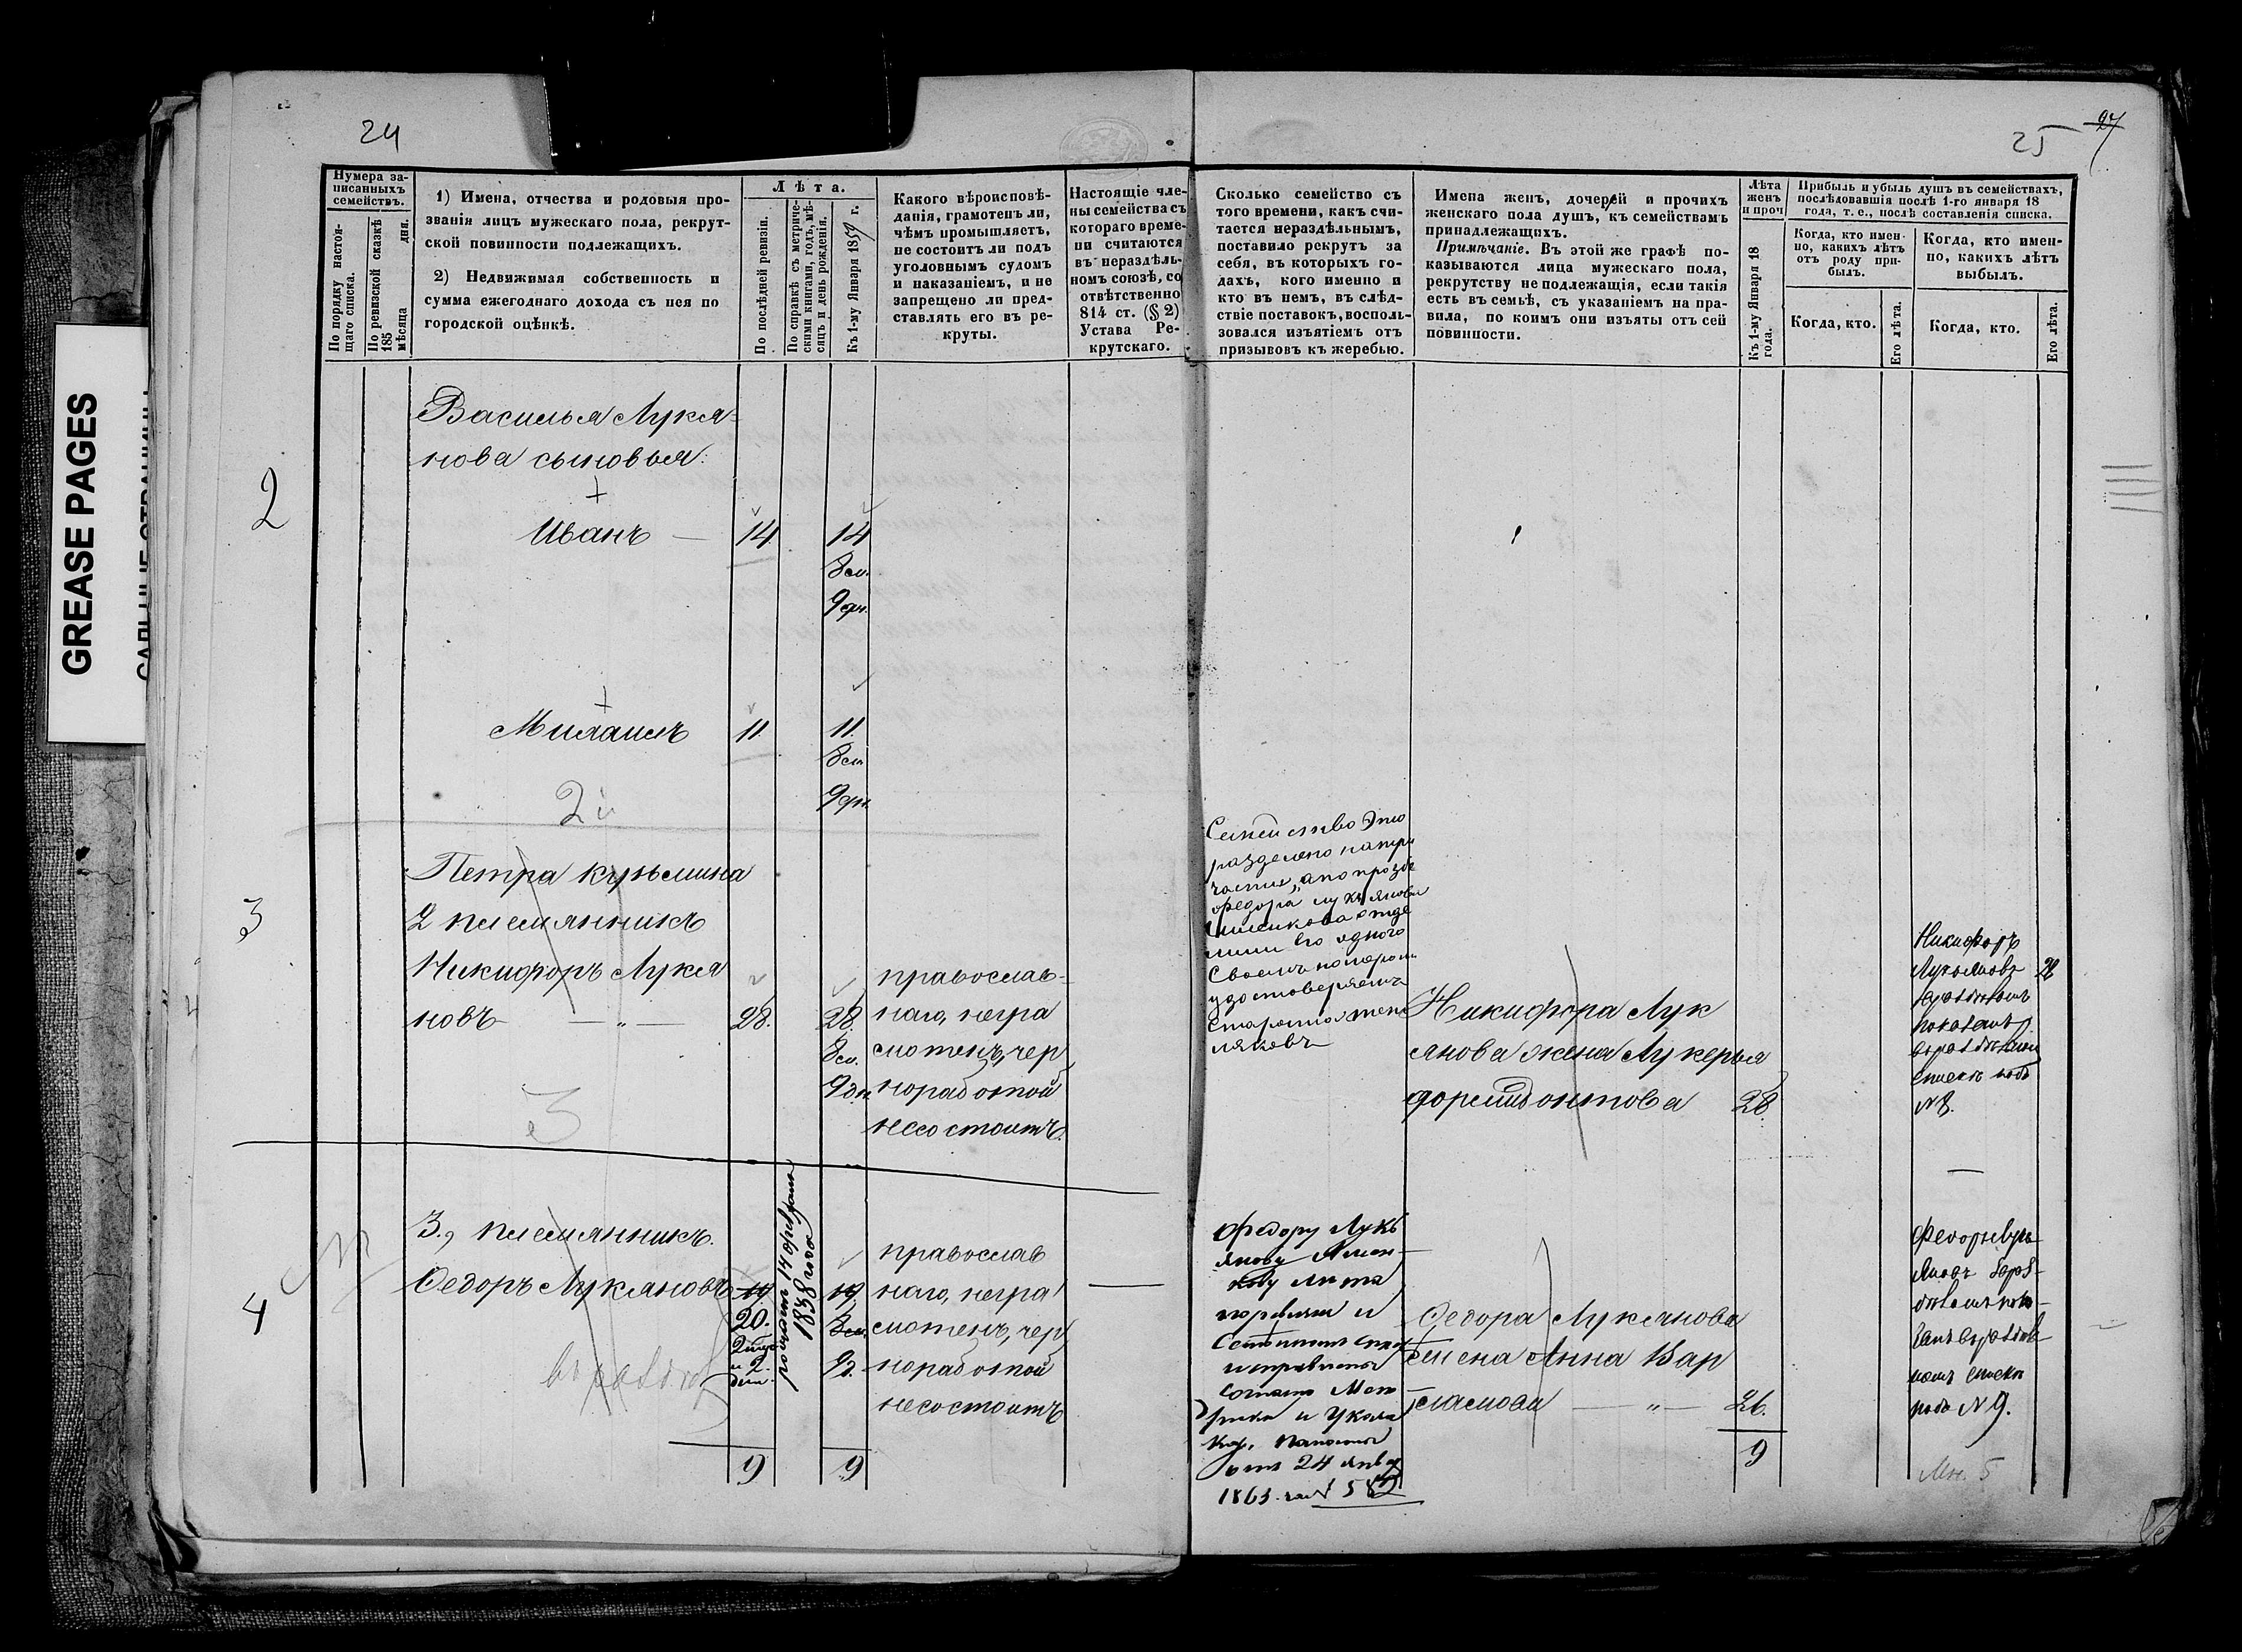 GREASE PAGES
24
25
27
Нумера за-
писанныхъ
семействъ.
По порядку настоя-
щаго списка.
По ревизской сказкѣ
185
мѣсяца дня.
1) Имена, отчества и родовыя про-
званія лицъ мужескаго пола, рекрут-
ской повинности подлежащихъ.
2) Недвижимая собственность и
сумма ежегоднаго дохода съ нея по
городской оцѣнкѣ.
Лѣта.
По послѣдней ревизіи.
По справкѣ съ метриче-
скими книгами, годъ, мѣ-
сяцъ и день рожденія.
Къ 1-му Января 1859 г.
Какого вѣроисповѣ-
данія, грамотенъ ли,
чѣмъ промышляетъ,
не состоитъ ли подъ
уголовнымъ судомъ
и наказаніемъ, и не
запрещено ли пред-
ставлять его въ ре-
круты.
Настоящіе чле-
ны семейства съ
котораго време-
ни считаются
въ нераздѣль-
номъ союзѣ, со
отвѣтственно
814 ст. (§ 2)
Устава Ре-
крутскаго.
Сколько семейство съ
того времени, какъ счи-
тается нераздѣльнымъ,
поставило рекрутъ за
себя, въ которыхъ го-
дахъ, кого именно и
кто въ немъ, въ слѣд-
ствіе поставокъ, восполь-
зовался изъятіемъ отъ
призывовъ къ жеребью.
Имена женъ, дочерей и прочихъ
женскаго пола душъ, къ семействамъ
принадлежащихъ.
Примѣчаніе. Въ этой же графѣ по-
казываются лица мужескаго пола,
рекрутству не подлежащія, если такія
есть въ семьѣ, съ указаніемъ на пра-
вила, по коимъ они изъяты отъ сей
повинности.
Лѣта
женъ
и проч
Къ 1-му Января 18
года.
Прибыль и убыль душъ въ семействахъ,
послѣдовавшія послѣ 1-го января 18
года, т. е., послѣ составленія списка.
Когда, кто имен-
но, какихъ лѣтъ
отъ роду при-
былъ.
Когда, кто имен-
но, какихъ лѣтъ
выбылъ.
Когда, кто.
Его лѣта.
Когда, кто.
Его лѣта.
Василья Лукя-
нова сыновья:
2
Иванъ — 14 14
8 м.
9 дн.
Михаилъ 11 11
8 м
9 дн.
2й
Петра Кузьмина
3
2 племянникъ
Никифоръ Лукя
новъ — „ — 28. 28.
8 м.
9 дн
православ-
наго, негра
мотенъ, чер
ноработой
несостоитъ.
3
Семейство это
разделено на три
части, а по прозбе
Федора Лукьянова
его одного
Своемъ
удостоверяемъ
Староста
Никифора Лук
янова жена Лукерья
28
Никифоръ
Лукьяновъ 28
показанъ
списке подъ
№ 8.
4
3., племянникъ.
Федоръ Лукяновъ 19 19
20.
2 мца
и 2.
дни.
родился 14 октября
1838 года
8 м.
9 д.
православ
наго, негра
мотенъ, чер
ноработой
несостоитъ
9 9
Федору Лукь
янову
Лѣта
и
исправлены
согласно Мет
рики и Указа
Каз. Палаты
отъ 24 янвр
1863. за № 582
Федора Лукянова
жена Анна Вар
ламова — „ — 26.
9
Федоръ Лукь
яновъ
номъ списке
подъ № 9.